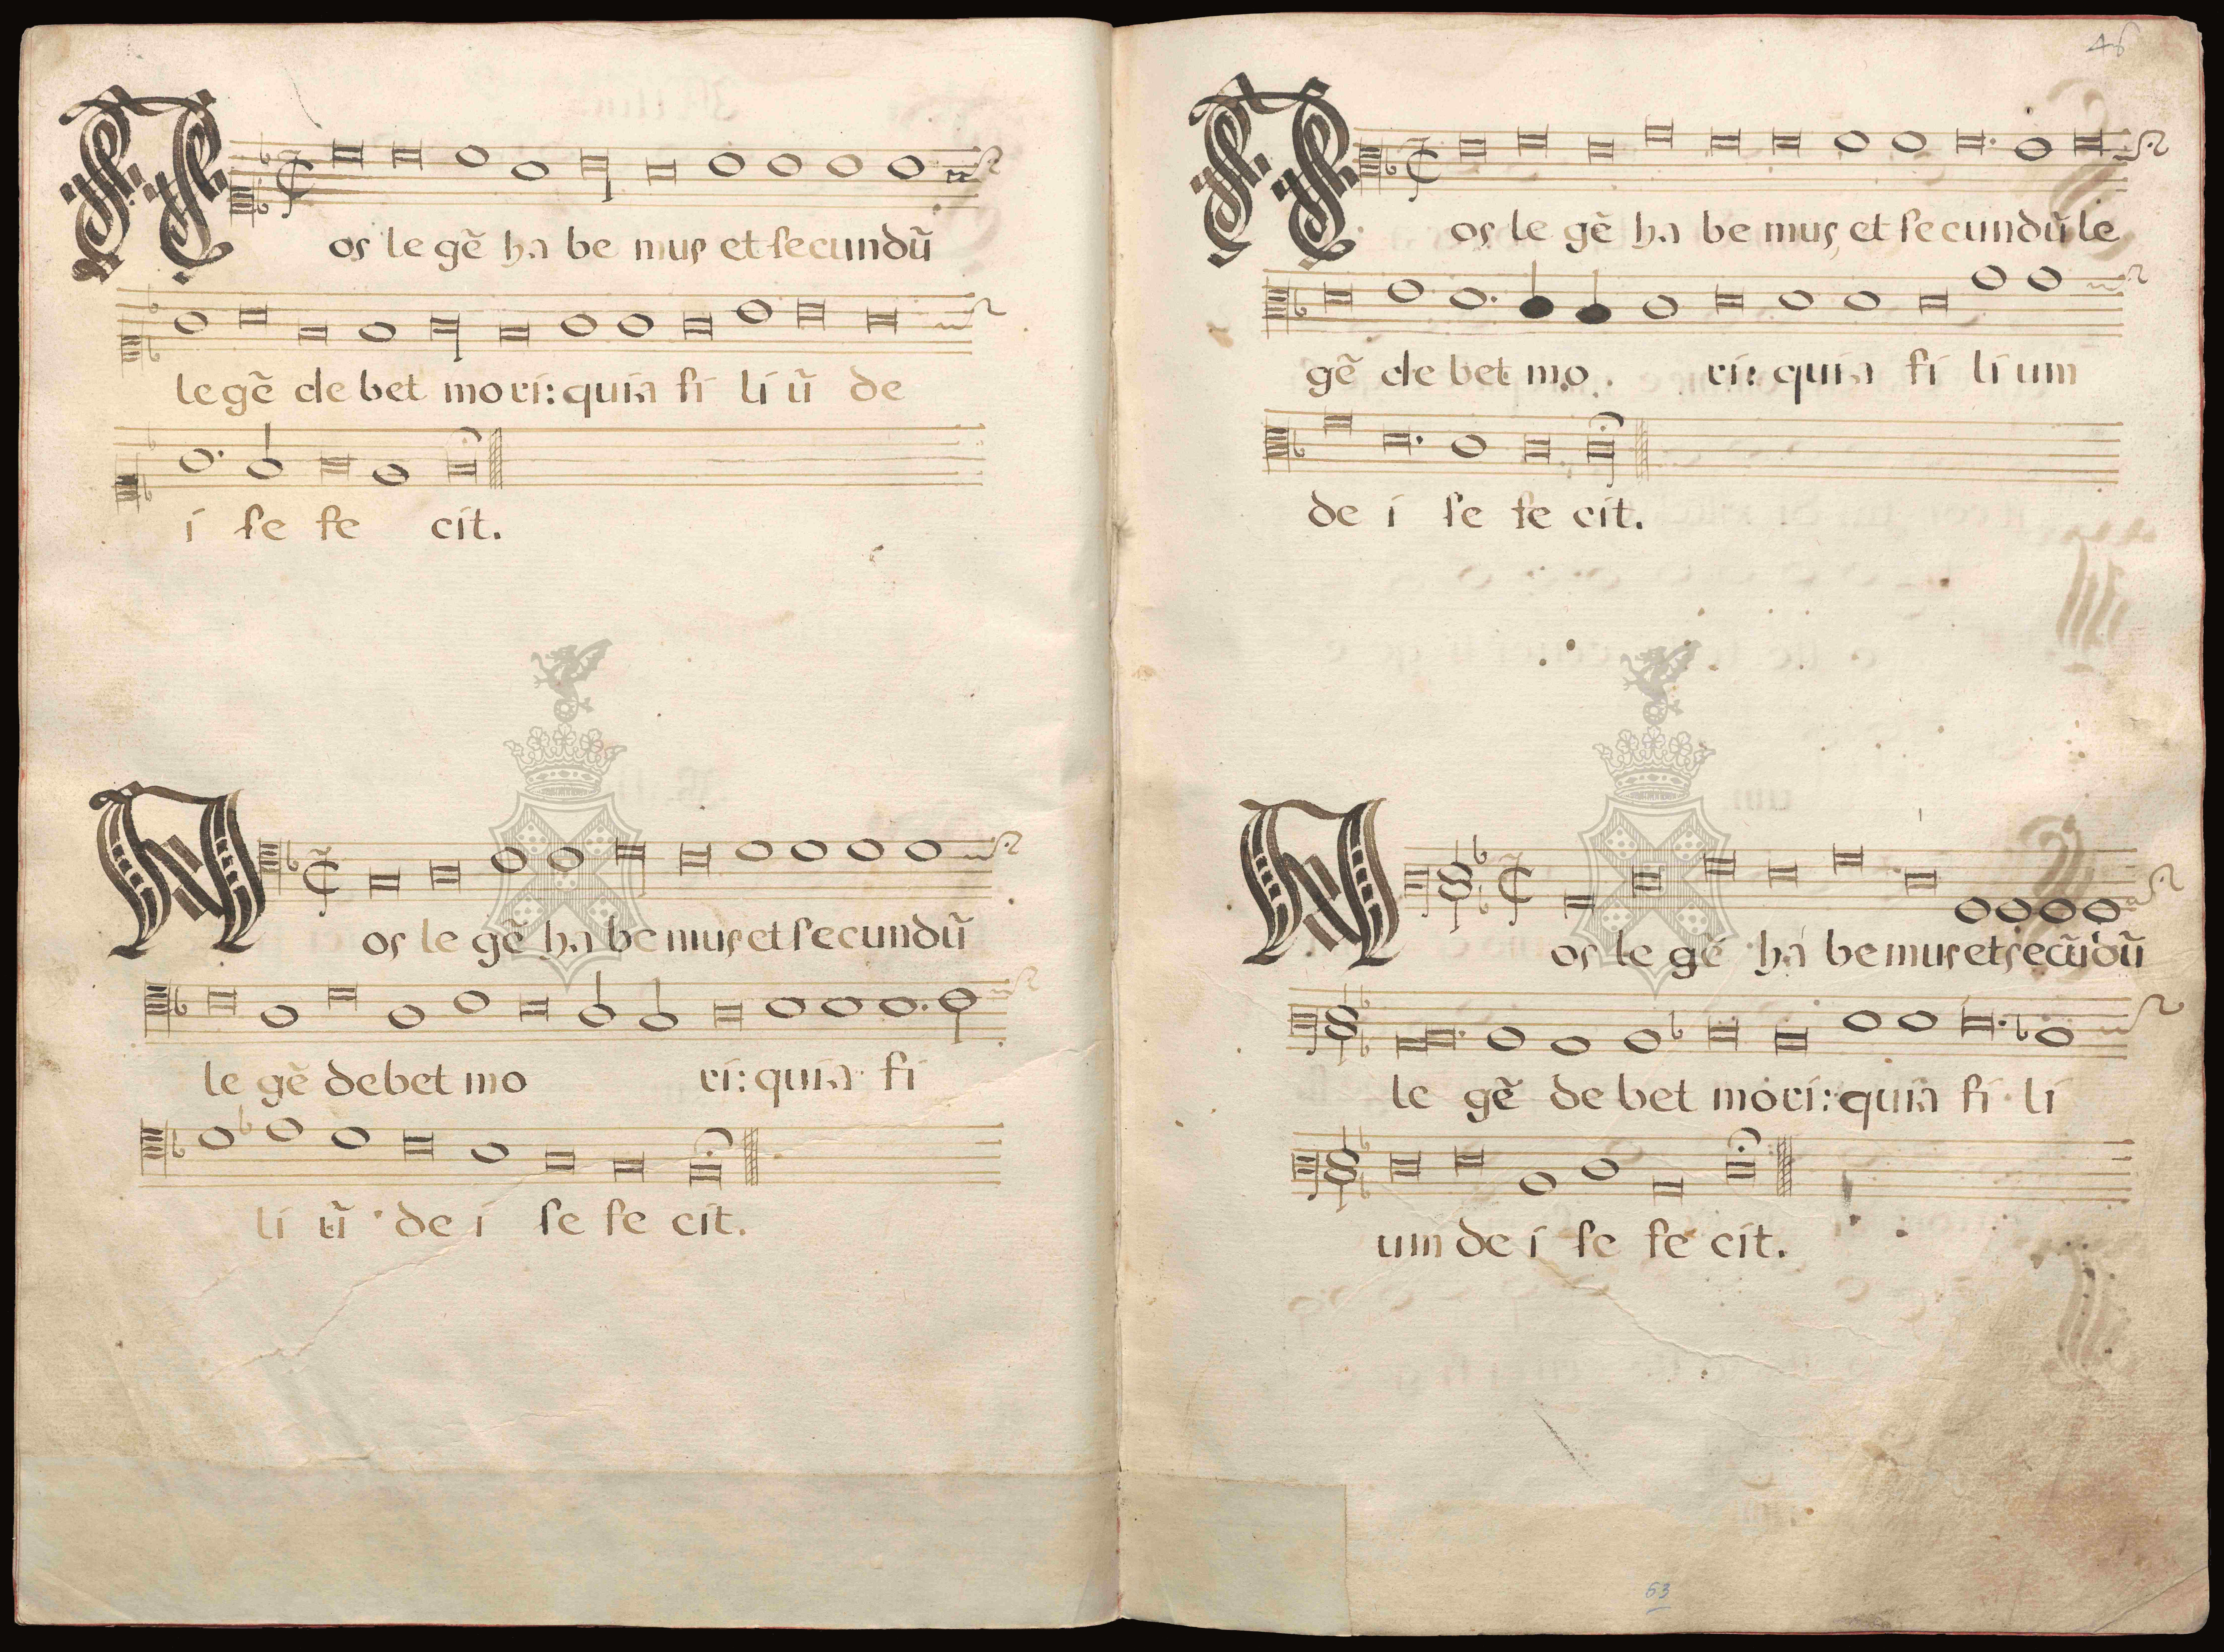 Nos le gẽ ha be mus et secundũ
le gẽ de bet mo ri: quia fi li ũ de
i se fe cit.
Nos le gẽ ha be mus et secundũ
le gẽ debet mo ri: quia fi
li ũ de i se fe cit.
46
Nos le gẽ ha be mus et secundũ le
gẽ de bet mo ri: quia fi li um
de i se fe cit.
Nos le gẽ ha be mus et secũdũ
le gẽ de bet mori: quia fi li
um de i se fe cit.
63